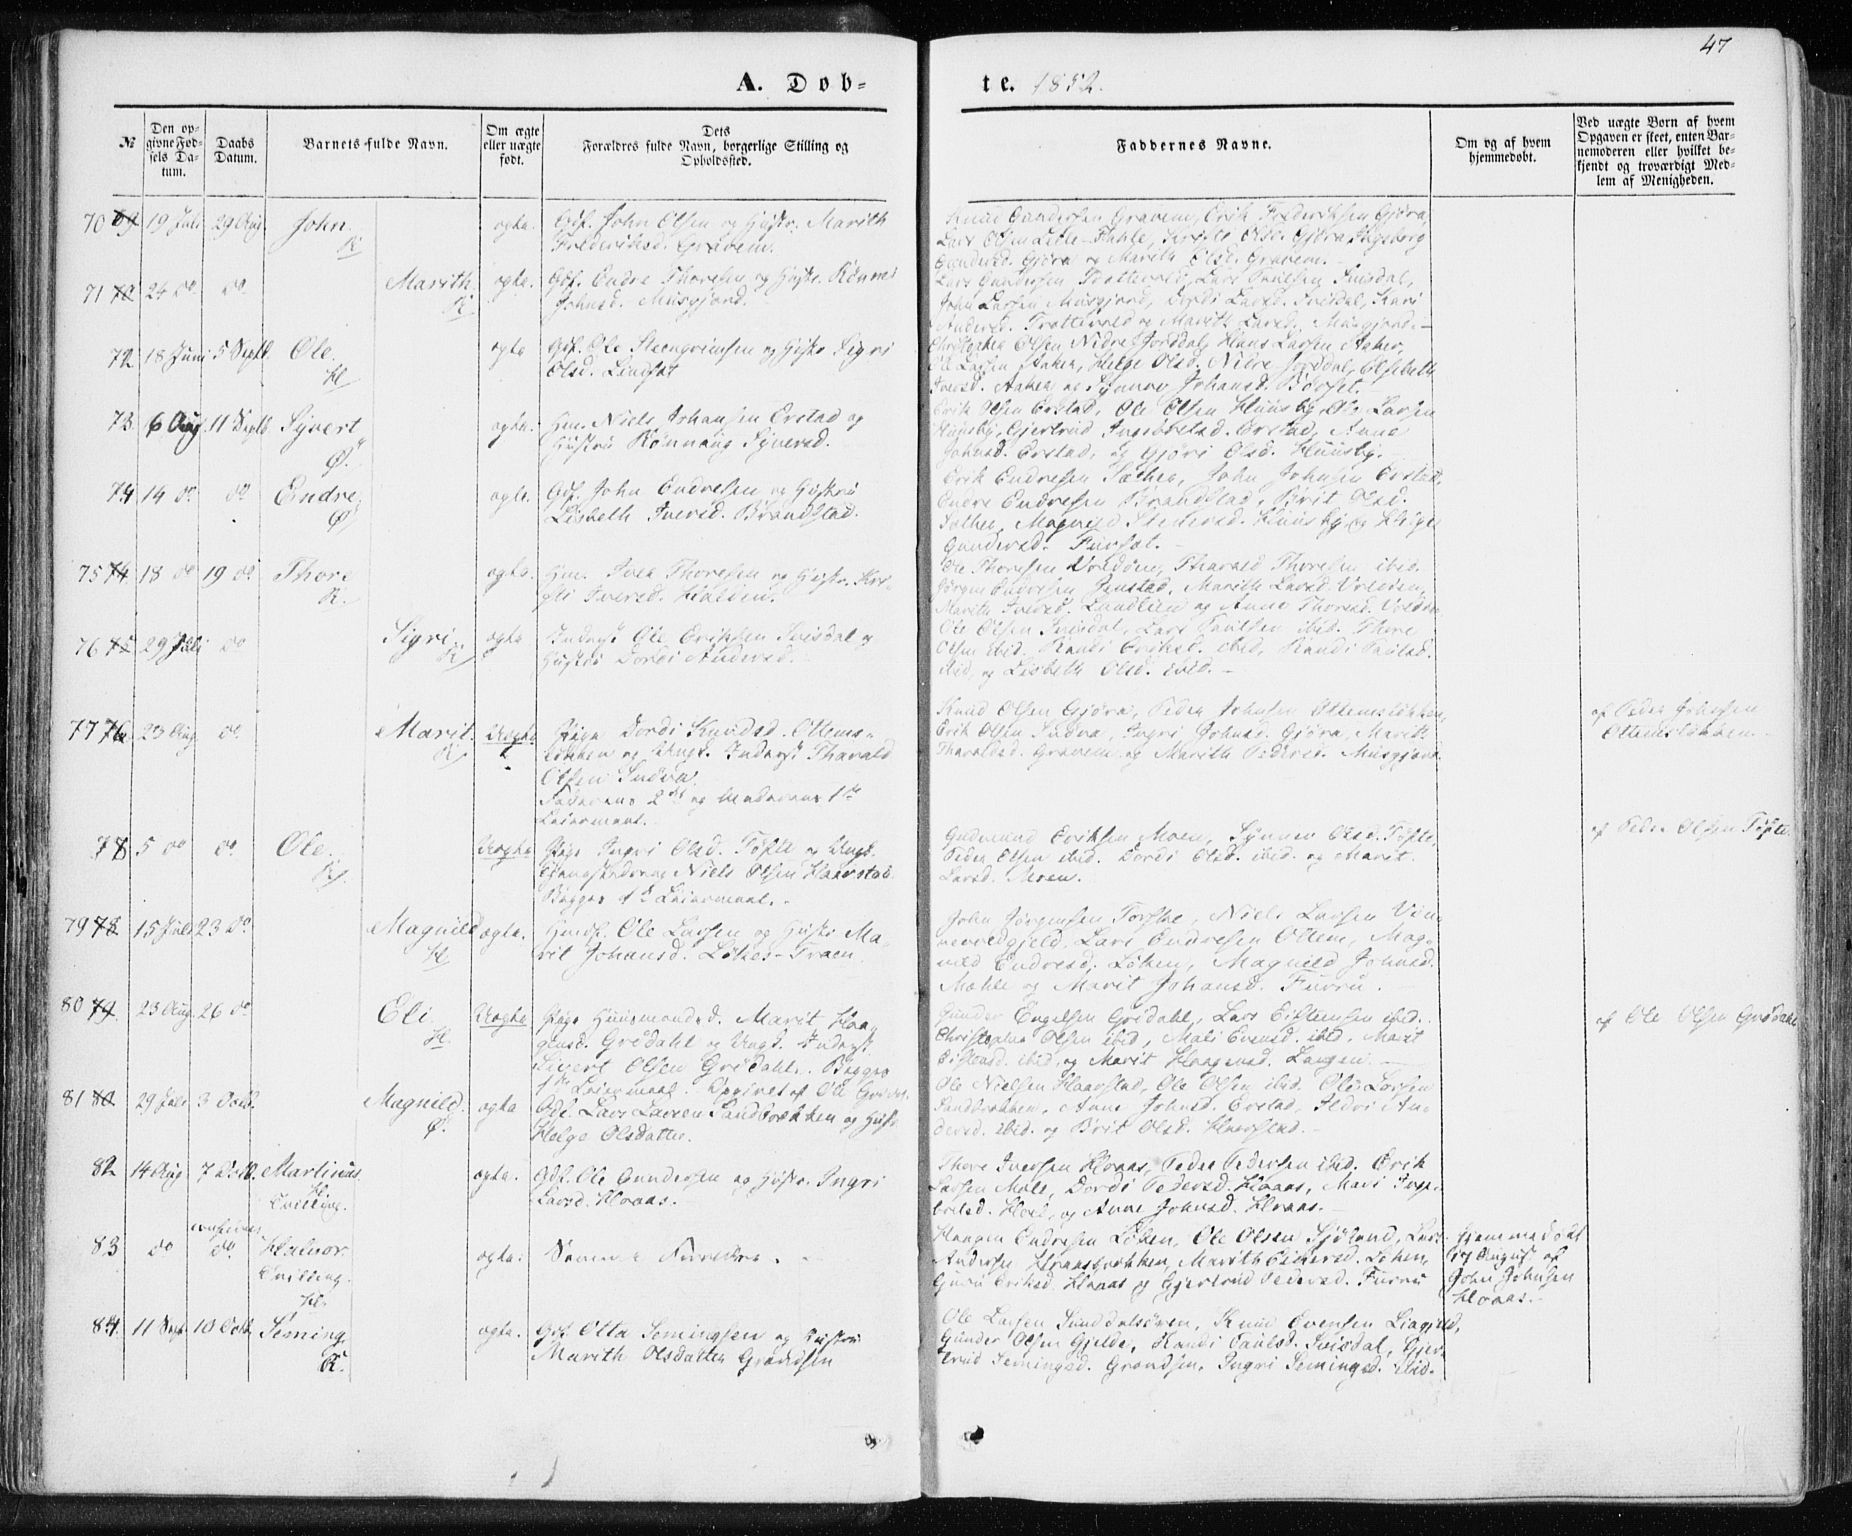 47
A. Døb-
te. 1852.
№
Den opgivne Fødsels Datum.
Daabs Datum.
Barnets fulde Navn.
Om ægte eller uægte født.
Dets Forældres fulde Navn, borgerlige Stilling og Opholdssted.
Faddernes Navne.
Om og af hvem hjemmedøbt.
Ved uægte Børn af hvem Opgaven er skeet, enten Barnemoderen eller hvilket bekjendt og troværdigt Medlem af Menigheden.
70 69 19 Juli 29 Aug. John ægte. Gdf. John Olsen og Hustr. Marith
Frederiksd. Gravem.
Knud Gundersen Gravem, Erik Frederiksen Gjøra,
Lars Olsen Lille-Fahle, Olsd. Gjøra, Ingeborg
Gundersd. Gjøra og Marith Olsd. Gravem.
71 70 24 do do Marith ægte. Gdf. Endre Thoresen og Hustr.
Johnsd. Musgjerd.
Lars Gundersen Trættevold, Lars Paulsen Svisdal,
John Larsen Musgjerd, Dordi Larsd. Svisdal, Kari
Andersd. Trættevold og Marith Larsd. Musgjerd.
72 18 Juni 5 Septb. Ole ægte Gdf. Ole Steengrimsen og Hustr. Sigri
Olsd. Lindset
Christopher Olsen Nedre Jorddal, Hans Larsen Aaker,
Ole Larsen Aaker, Helge Olsd. Nedre Jorddal, Elsebeth
Iversd. Aaker og Synnøv Johansd. Børset.
73 6 Aug. 11 Septb Syvert Ø. ægte. Hm. Niels Johansen Erstad og
Hustru Rønnaug Syversd.
Erik Olsen Erstad, Ole Olsen Huusby, Ole Larsen
Huusby, Gjertrud Ingebretsd. Erstad, Anne
Johnsd. Erstad, og Gjøri Olsd. Huusby.
74 14 do do Endre Ø ægte. Gdf. John Endresen og Hustru
Lisbeth Iversd. Brandstad.
Erik Endresen Sæther, John Johnsen Erstad,
Endre Endresen Brandstad, Brit Olsd.
Sæther, Magnild Huusby og Helge
Gundersd. Furset.
75 74 18 do 19 do Thore ægte. Hm. Iver Thoresen og Hustr.
Iversd.
Ole Thoresen Tharald Thoresen ibid.
Jørgen Endresen Marith Larsd.
Marith Iversd. Lundlien og Anne Thoresd.
76 75 29 Juli do Sigri ægte Inderst Ole Eriksen Svisdal og
Hustru Dordi Andersd.
Ole Olsen Svisdal, Lars Paulsen ibid. Thore
Olsen ibid. Randi Eriksd. ibid, Randi Paulsd.
ibid, og Lisbeth Olsd. ibid.
77 76 23 Aug. do Marit Uægte Pige Dordi Knudsd. Ottems-
løkken og Ungk. Inderst Tharald
Olsen Snøva
Faderens 2det og Moderens 1ste
Leiermaal.
Knud Olsen Gjøra, Peder Johnsen Ottemsløkken,
Erik Olsen Snøva, Ingri Johnsd. Gjøra, Marith
Tharaldsd. Gravem og Marith Pedersd. Musgjerd
af Peder Johnsen
Ottemsløkken.
78 5 do do Ole. Uægte Pige Ingri Olsd. Tøfte og Ungk.
Niels Olsen Haarstad
Begges 1ste Leiermaal.
Gudmund Eriksen Moen, Synnøv Olsd. Tøfte,
Peder Olsen ibid. Dordi Olsd. ibid. og Marit
Larsd. Moen.
af Peder Olsen Tøfte
79 78 15 Juli 23 do Magnild ægte. Huusf. Ole Larsen og Hustr. Ma-
rit Johansd. Løken-Træen
John Jørgensen Torske, Niels Larsen Vin-
nevoldgjeld, Lars Endresen Ottem, Mag-
nild Endresd. Løken, Magnild Johnsd.
Mæhle og Marit Johansd. Furru.
80 79 23 Aug. 26 do Eli Uægte Pige Huusmandsd. Marit Haa-
gensd. Grødahl og Ungk. Inderst
Sivert Olsen Grødahl. Begges
1ste Leiermaal. Opgivet af Ole
Gunder Engelsen Grødahl, Lars Estensen ibid.
Christopher Olsen ibid, Mali Evensd. ibid. Marit
ibid. og Marit Haagensd. Langen.
af Ole Olsen Grødahl
81 80 29 Juli 3 Octb. Magnild. Ø. ægte Gdf. Lars Larsen Sandbrækken og Hustr
Helge Olsdatter.
Ole Nielsen Haarstad, Ole Olsen ibid. Ole Larsen
Sandbrækken, Anne Johnsd. Erstad, Sildri An-
dersd. ibid. og Brit Olsd. Haarstad.
82 14 Aug 7 Octb. Martinus Tvilling. ægte. Gdf. Ole Gundersen og Hustr. Ingri
Larsd. Hoaas.
Thore Iversen Hoaas, Peder Pedersen ibid. Erik
Larsen Mæle, Dordi Pedersd. Hoaas, Mari Inge-
bretsd. Hoel, og Anne Johnsd. Hoaas.
83 do do Halvor Tvilling. ægte. Samme Forældre.
Haagen Endresen Løken, Ole Olsen Sjølund, Lars
Andersen Hoaasbrækken, Marith Løken,
Guru Eriksd. Hoaas og Gjertrud Pedersd. Furru
Hjemmedøbt
17 August af
John Johnsen
Hoaas.
84. 11 Sept. 10 Octb. Seming R. ægte. Gdf. Otto Semingsen og Hustru
Marith Olsdatter Grandsen
Ole Larsen Sunddalsøren, Knud Evensen Liagjeld,
Gunder Olsen Gjelde, Randi Paulsd. Svisdal, Gjer-
trud Semingsd. Grandsen, Ingri Semingsd. ibid.